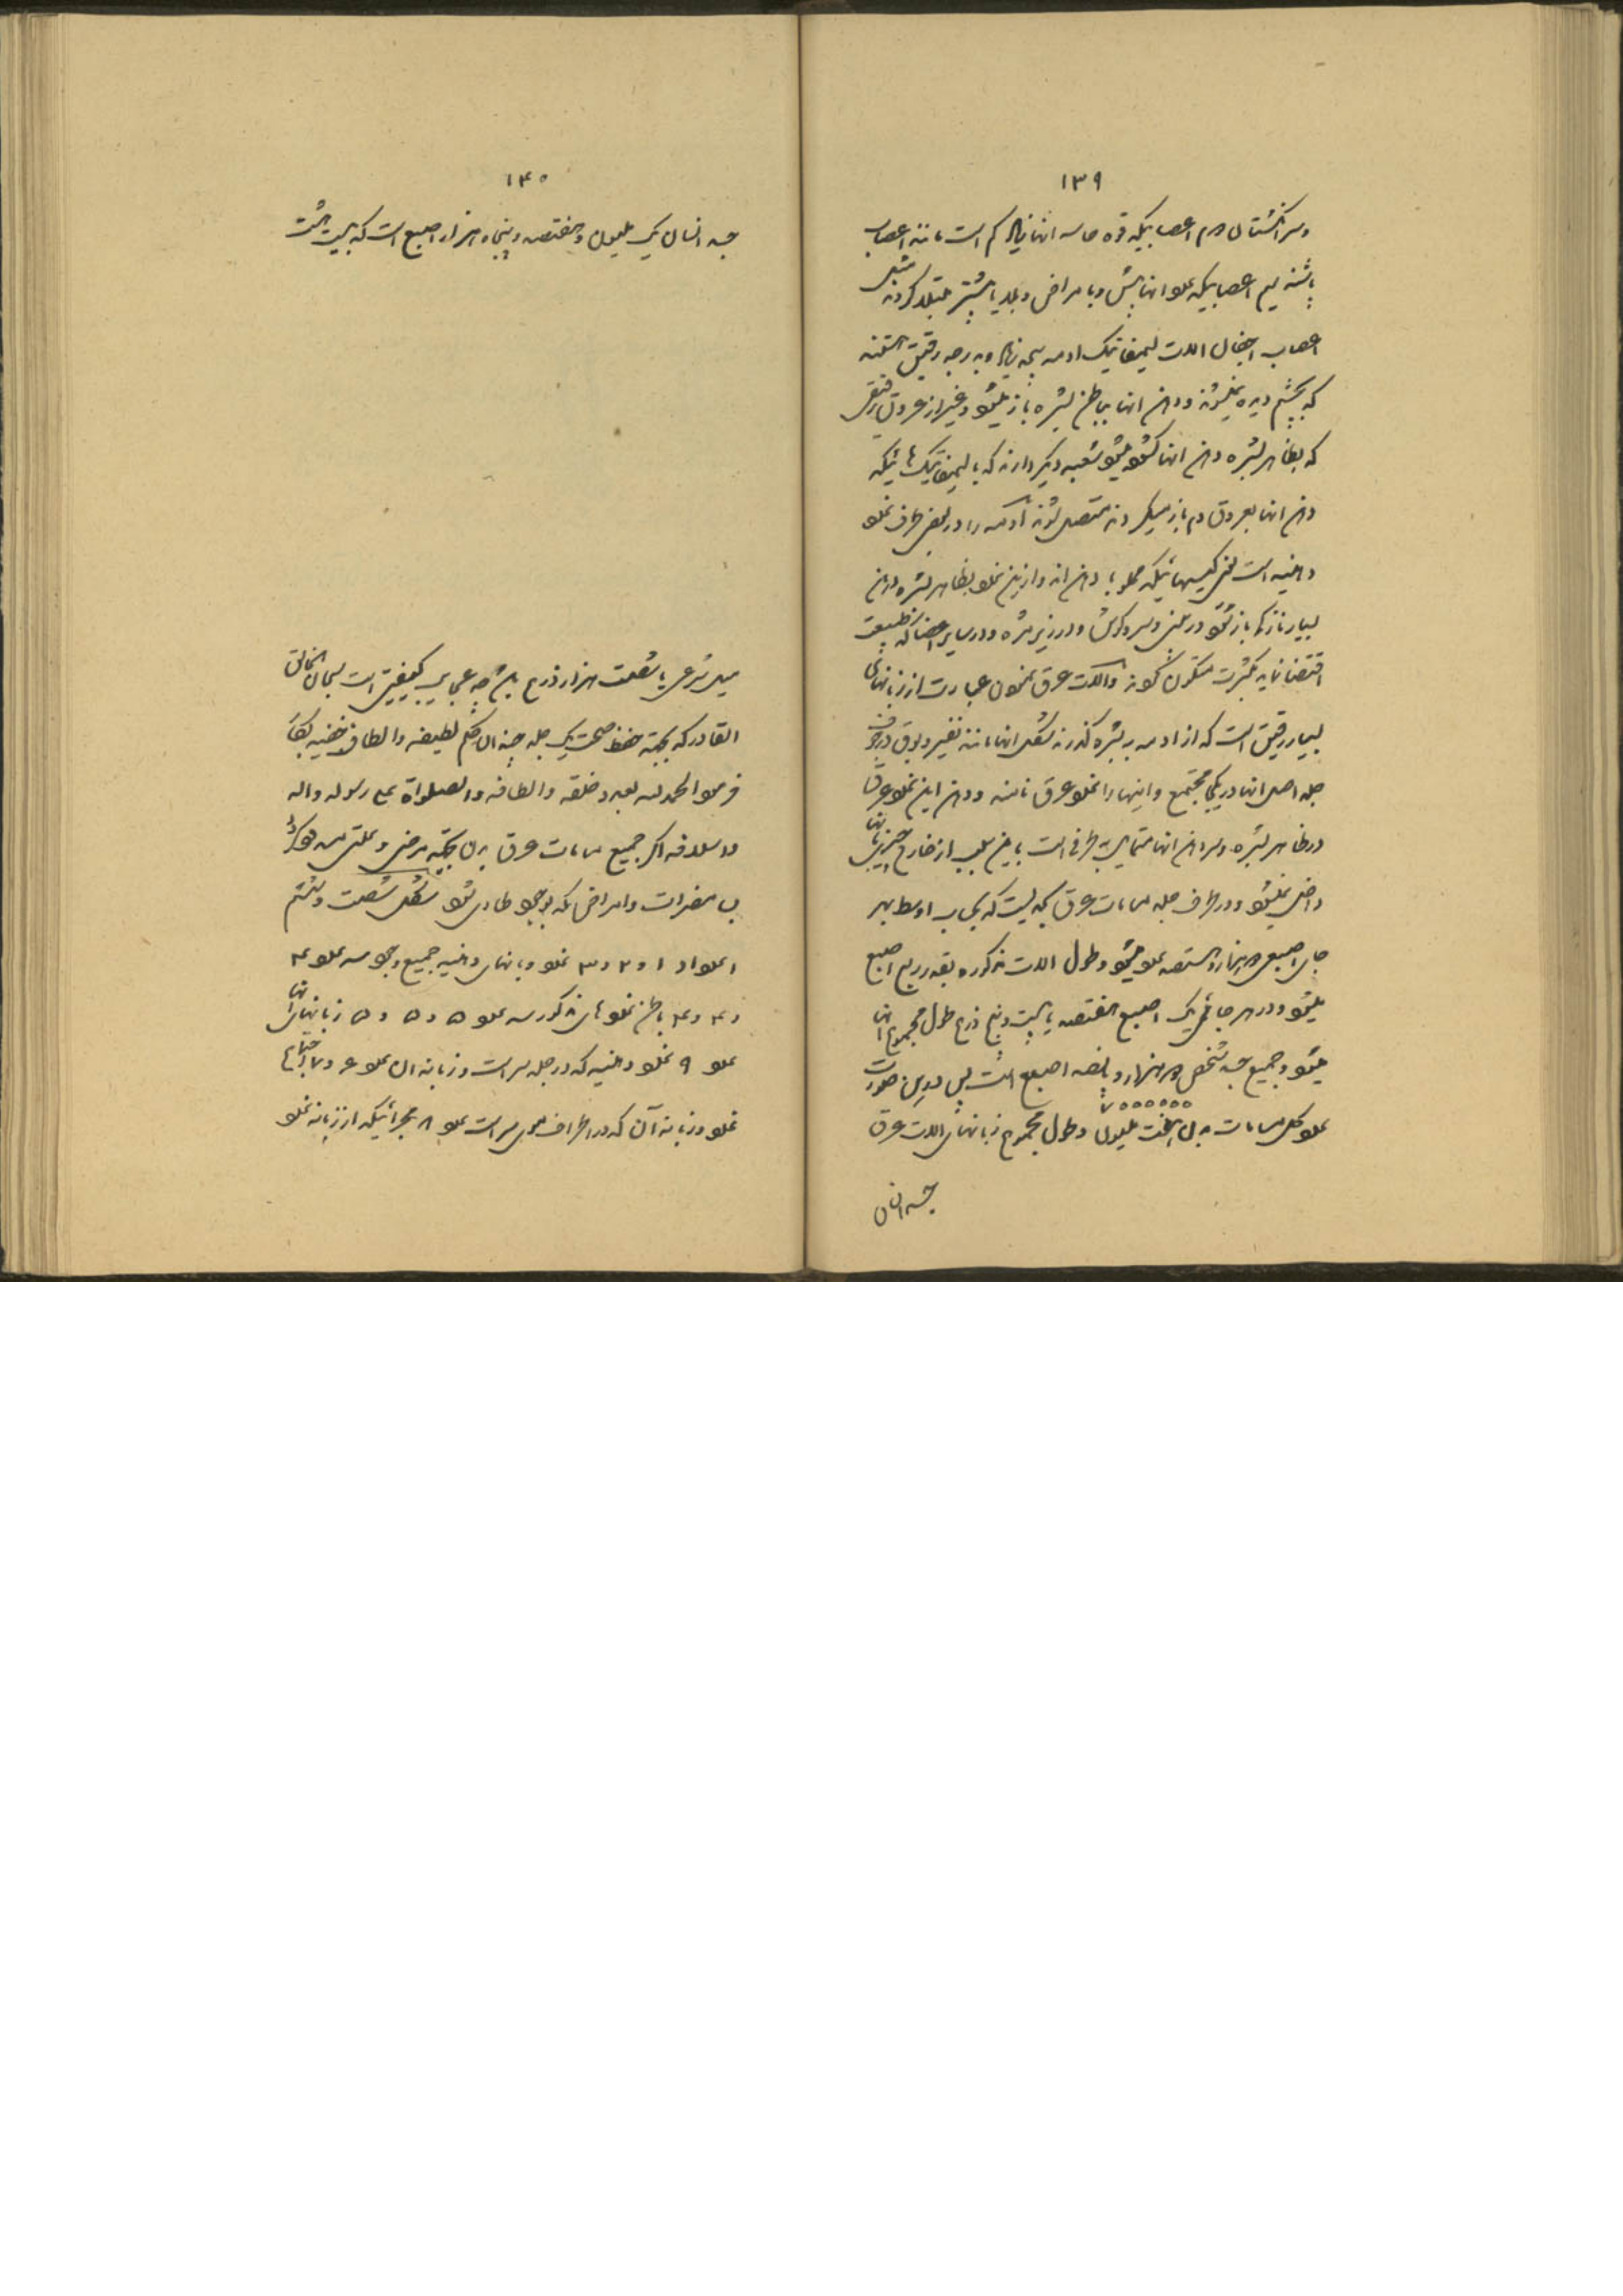 ۱۳۹
و سر انگشتان دوم اعصابیکه قوه حاسه انها زیاد کم است مانند اعصاب
پاشنه سیم اعصابیکه علو انها بیش و بامراض و بلایا بیشتر مبتلا کردند مثل
اعصاب اجفان الات لیمفاتیک ادمه بیحد زیاد و بدرجه رقیق هستند
که بچشم دیده نمیشوند و دهن انها بباطن بشره باز میشود و غیر از عروق رقیق
که بظاهر بشره دهن انها کشوده میشود شعبه دیگر دارند که با لیمفاتیک هائیکه
دهن انها بعروق دم باز میکردند متصل شوند ادمه را در بعض طرف غدد
دهنیه است یعنی کیسهائیکه مملو با دهن اند و ازین غدد بظاهر بشره دهن
بسیار نازک باز شود در بینی و سر و کوش و در زیر مژه و در سایر اعضا که طبیعت
اقتضا نماید بکثرت متکون شوند و الات عرق نمودن عبارت از زبانهای
بسیار رقیق است که از ادمه به بشره گذرند شکل انها مانند نفیر و بوق در جوف
جلد اصل انها در یکجا مجتمع و اینها را غدد عرق نامند و دهن این غدد عرق
در ظاهر بشره و سر دهن انها متمایل بطرفی است باین سبب از خارج چیزی بانها
داخل نمیشود و در اطراف جلد مسامات عرق بحدیست که بحساب اوسط بهر
جای اصبعی دو هزار و هشتصد عدد میشود و طول الات مذکوره بقدر ربع اصبع
میشود و در هر جای یک اصبع هفتصد یا بیست و پنج ذرع طول مجموع انها
میشود و جمیع جسد شخص دو هزار و پانصد اصبع است پس درین صورت
۷۰۰۰۰۰۰
عدد کل مسامات بدن هفت ملیون و طول مجموع زبانهای الات عرق
جسد انسان
۱۴۰
جسد انسان یک ملیون و هفتصد و پنجاه هزار اصبع است که بیست هشت
میل شرعی یا شصت هزار ذرع باشد چه عجایب کیفیتی است سبحان الخالق
القادر که بجهة حفظ صحت یک جلد چندان حکم لطیفه و الطاف خفیه بکار
فرمود الحمد لله بعدد خلقه و الطافه و الصلواة علی رسوله و اله
و اسلافه اکر جمیع مسامات عرق بدن بجهة مرضی و علتی مسدود کردد
بس مضرات و امراض که بوجود طاری شود شکل شصت و هشتم
اعداد ۱ و ۲ و ۳ غدد و بانهای دهنیه جمیع وجود سه عدد ۴
و ۴ و ۴ باطن غدد های مذکور سه عدد ۵ و ۵ و ۵ زبانهای انها
عدد ۹ غدد دهنیه که در جلد سر است و زبانه ان عدد ۶ و ۷ اجتماع
غدد و زبانه آن که در اطراف موی سر است عدد ۸ مجرائیکه از زبانه غدد